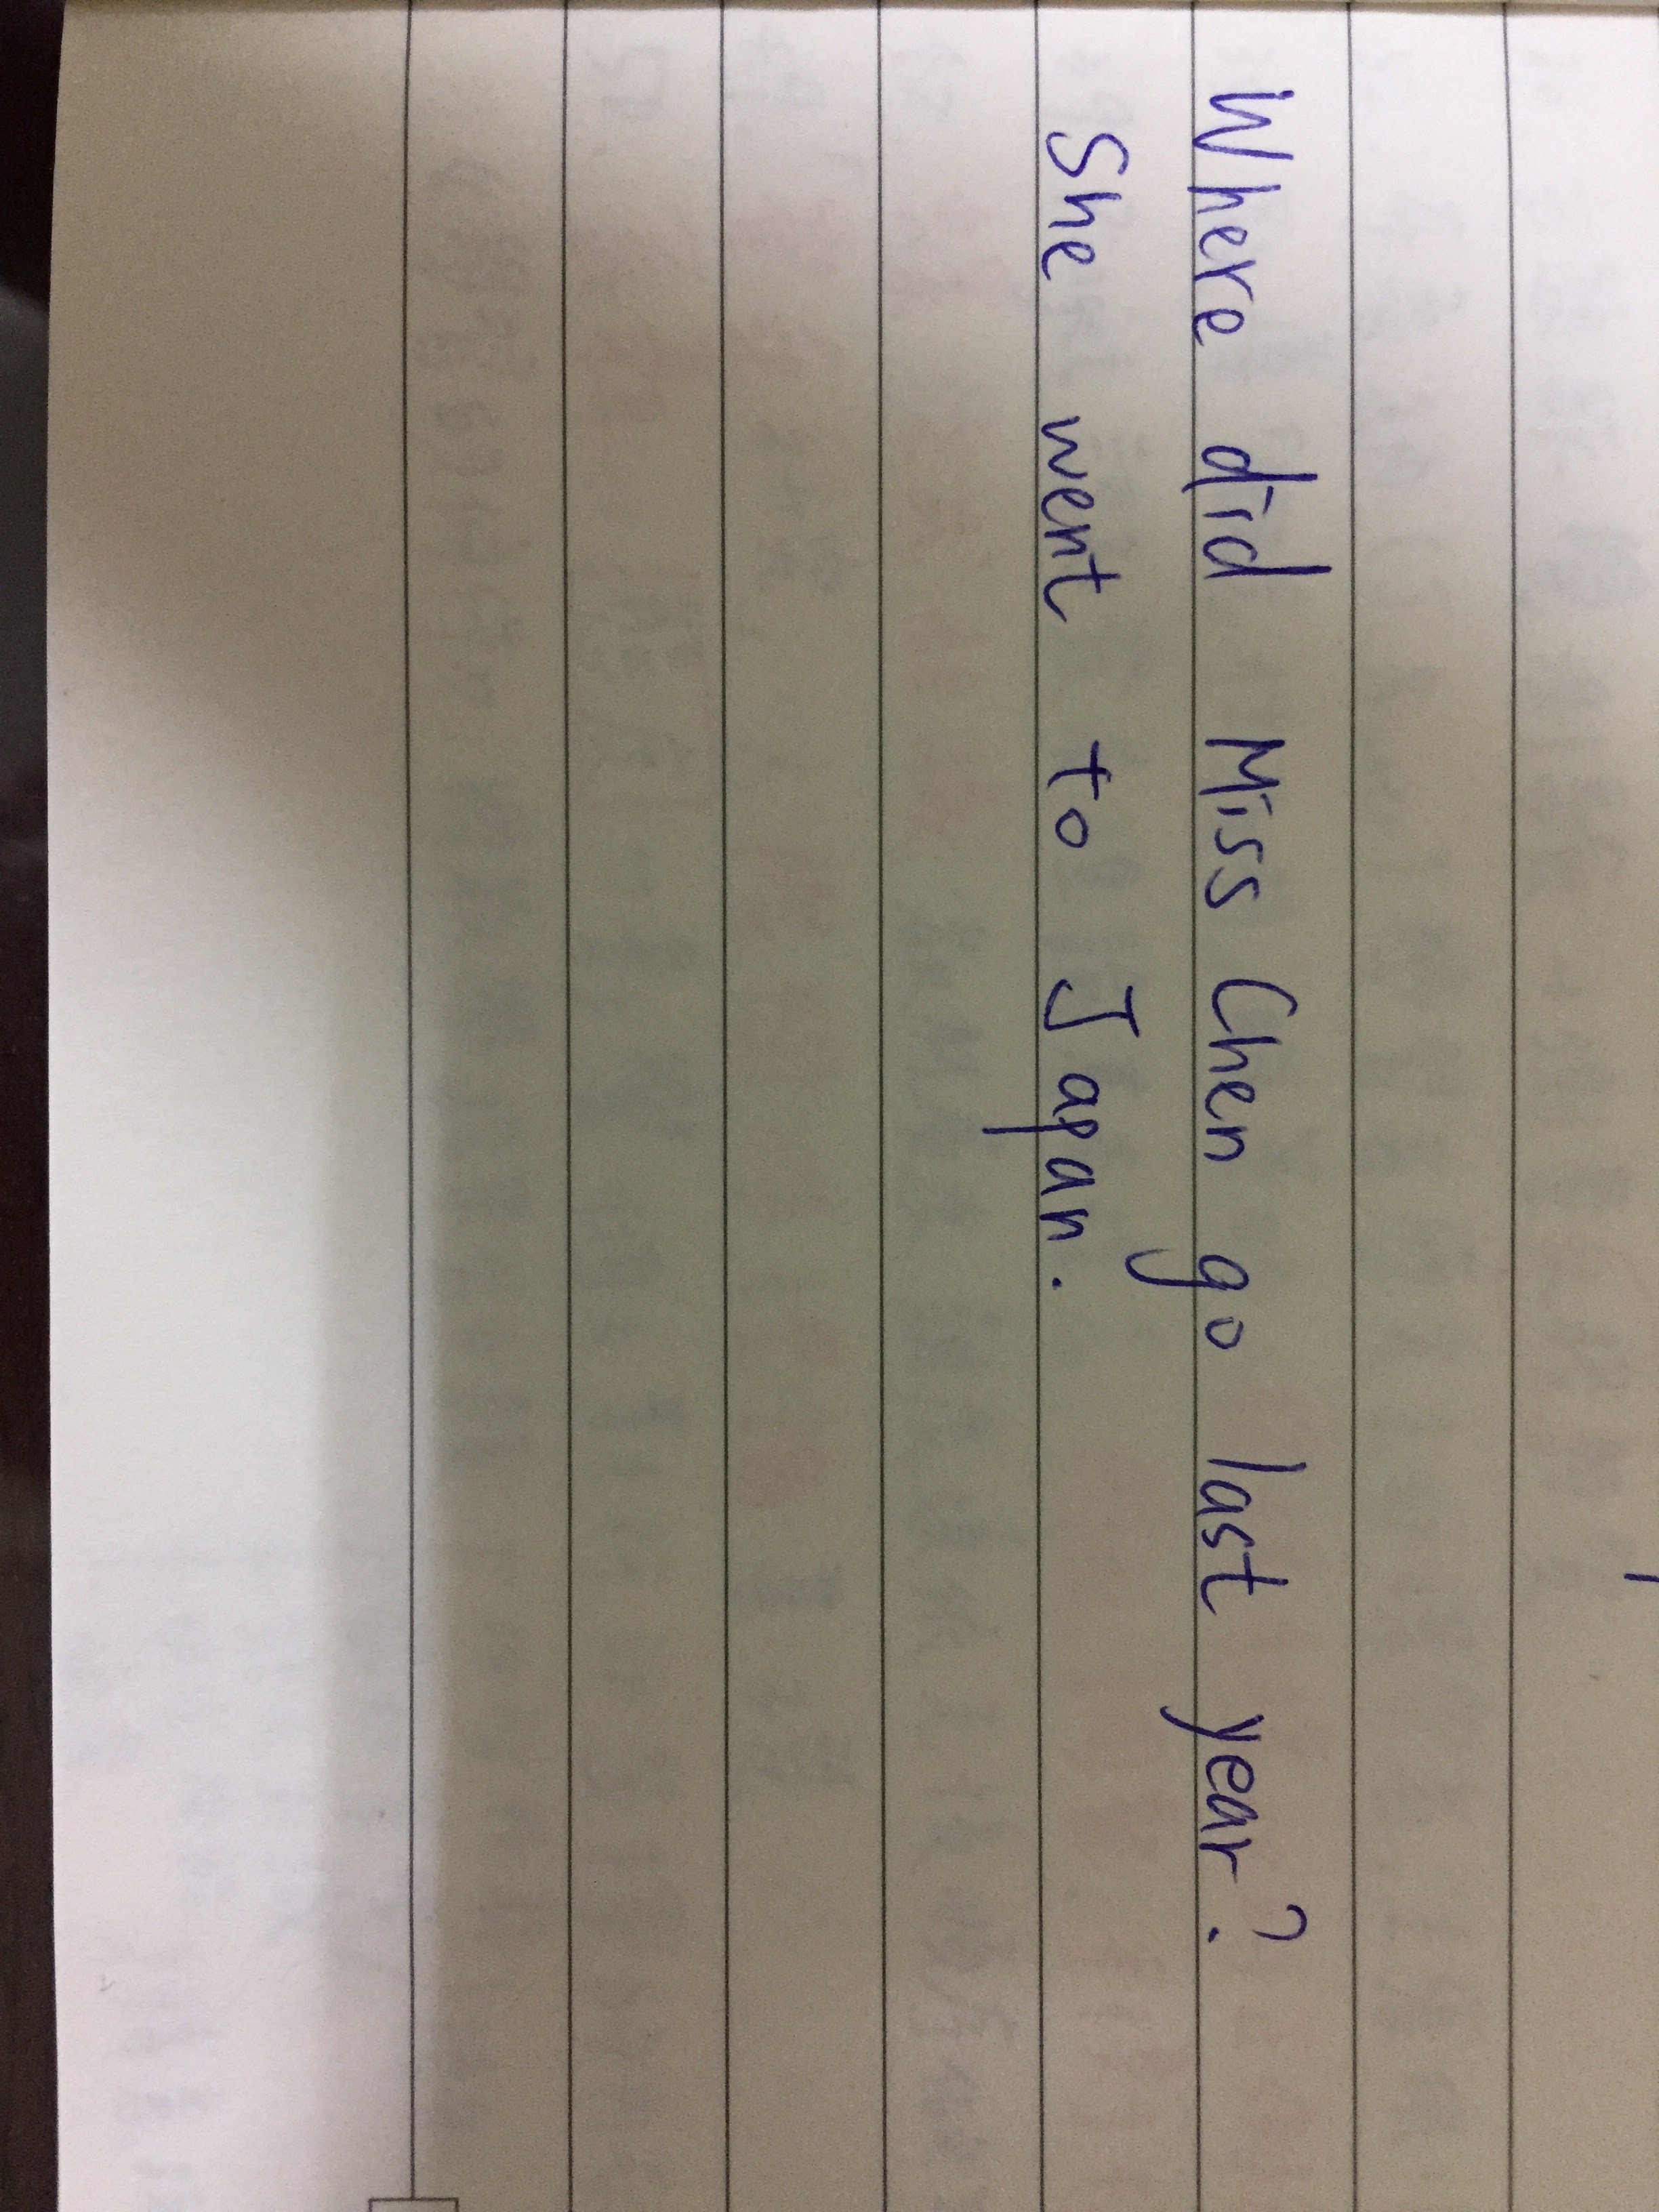 Where did Miss Chen go last year?
She went to Japan.